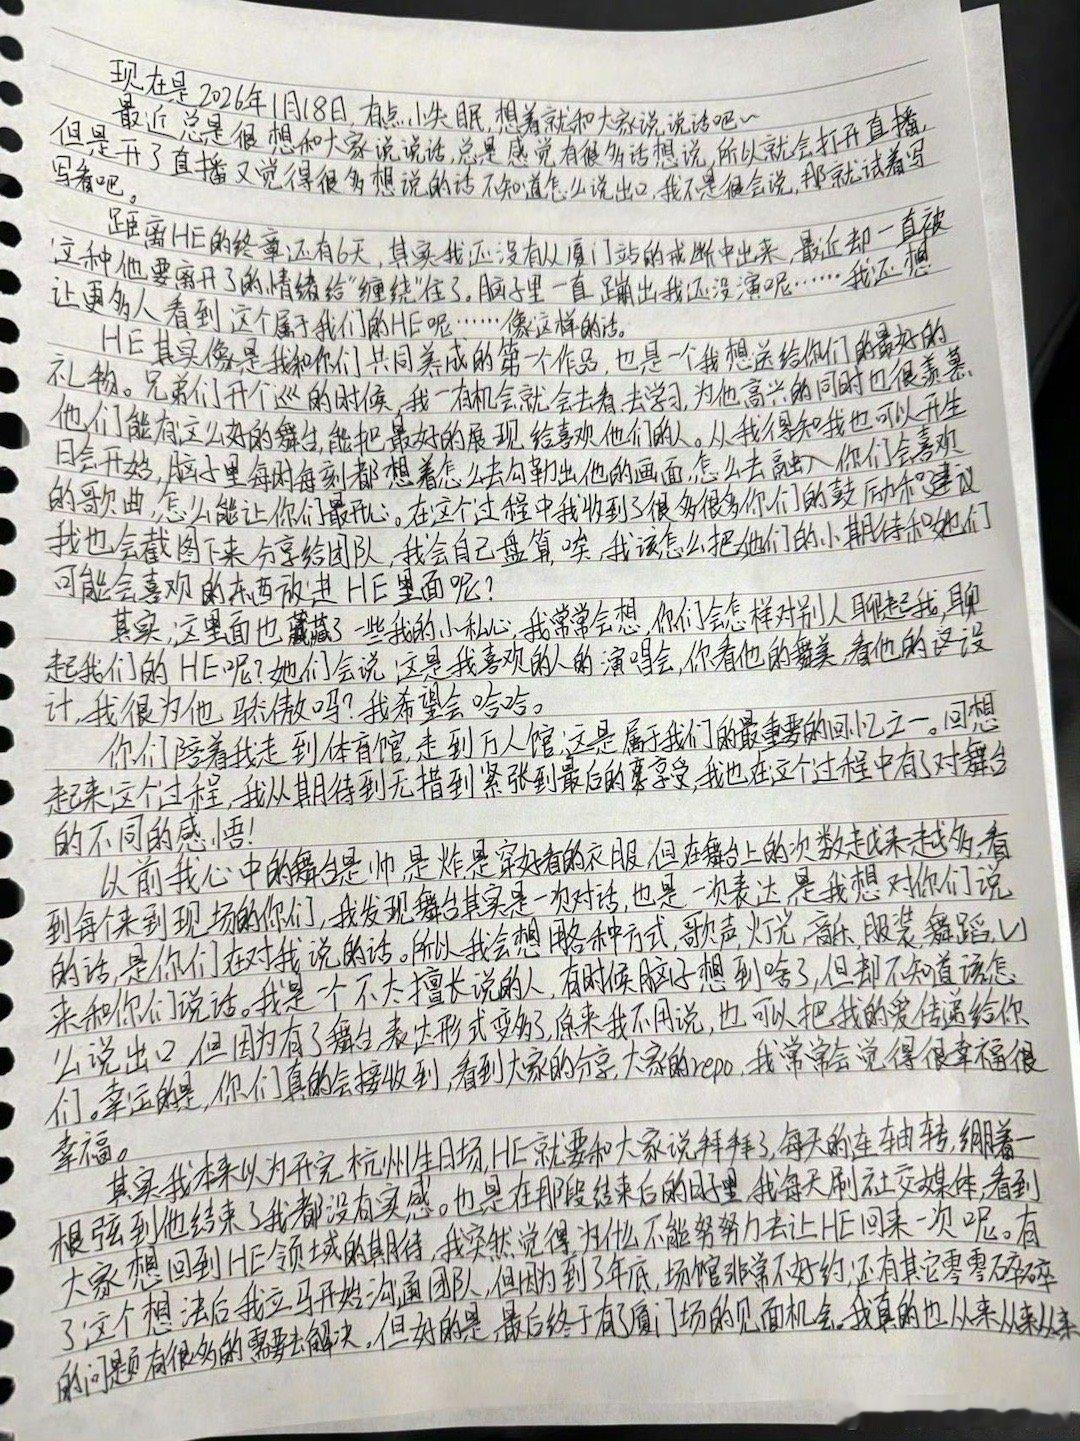 现在是2026年1月18日,有点小失眠,想着就和大家说说话吧~
最近总是很想和大家说说话,总是感觉有很多话想说,所以就会打开直播,
但是开了直播又觉得很多想说的话不知道怎么说出口,我不是很会说,那就试着写
写看吧。
距离HE的终章还有6天,其实我还没有从厦门站的戒断中出来,最近却一直被
这种他要离开了的情绪给“缠绕”住了。脑子里一直蹦出我还没演呢……我还想
让更多人看到这个属于我们的HE呢……像这样的话。
HE其实像是我和你们共同养成的第一个作品,也是一个我想送给你们的最好的
礼物。兄弟们开个巡的时候,我一有机会就会去看,去学习,为他高兴的同时也很羡慕,
他们能有这么好的舞台,能把最好的展现给喜欢他们的人。从我得知我也可以开生
日会开始,脑子里每时每刻都想着怎么去勾勒出他的画面,怎么去融入你们会喜欢
的歌曲,怎么能让你们最开心。在这个过程中我收到了很多很多你们的鼓励和建议
我也会截图下来分享给团队,我会自己盘算,唉,我该怎么把她们的小期待和她们
可能会喜欢的东西放进HE里面呢?
其实,这里面也藏了一些我的小私心,我常常会想,你们会怎样对别人聊起我,聊
起我们的HE呢?她们会说这是我喜欢的人的演唱会,你看他的舞美,看他的这设
计,我很为他骄傲吗?我希望会哈哈。
你们陪着我走到体育馆,走到万人馆,这是属于我们的最重要的回忆之一。回想
起来这个过程,我从期待到无措到紧张到最后的享受,我也在这个过程中有了对舞台
的不同的感悟!
以前我心中的舞台是帅是炸是穿好看的衣服,但在舞台上的次数越来越多,看
到每个来到现场的你们,我发现舞台其实是一次对话,也是一次表达,是我想对你们说
的话,是你们在对我说的话。所以我会想用各种方式,歌声,灯光,音乐,服装,舞蹈,以
来和你们说话。我是一个不太擅长说的人,有时候脑子想到啥了,但却不知道该怎
么说出口,但因为有了舞台,表达形式变多了,原来我不用说,也可以把我的爱传递给你
们。幸运的是,你们真的会接收到,看到大家的分享,大家的repo,我常常会觉得很幸福很
幸福。
其实我本来以为开完杭州生日场,HE就要和大家说拜拜了,每天的连轴转,绷着一
根弦到他结束了我都没有实感。也是在那段结束后的日子里,我每天刷社交媒体,看到
大家想回到HE领域的期待,我突然觉得为什么不能努努力去让HE回来一次呢。有
了这个想法后我立马开始沟通团队,但因为到了年底,场馆非常不好约,还有其它零零碎碎
的问题有很多的需要去解决,但好的是,最后终于有了厦门场的见面机会。我真的也从来从来从来